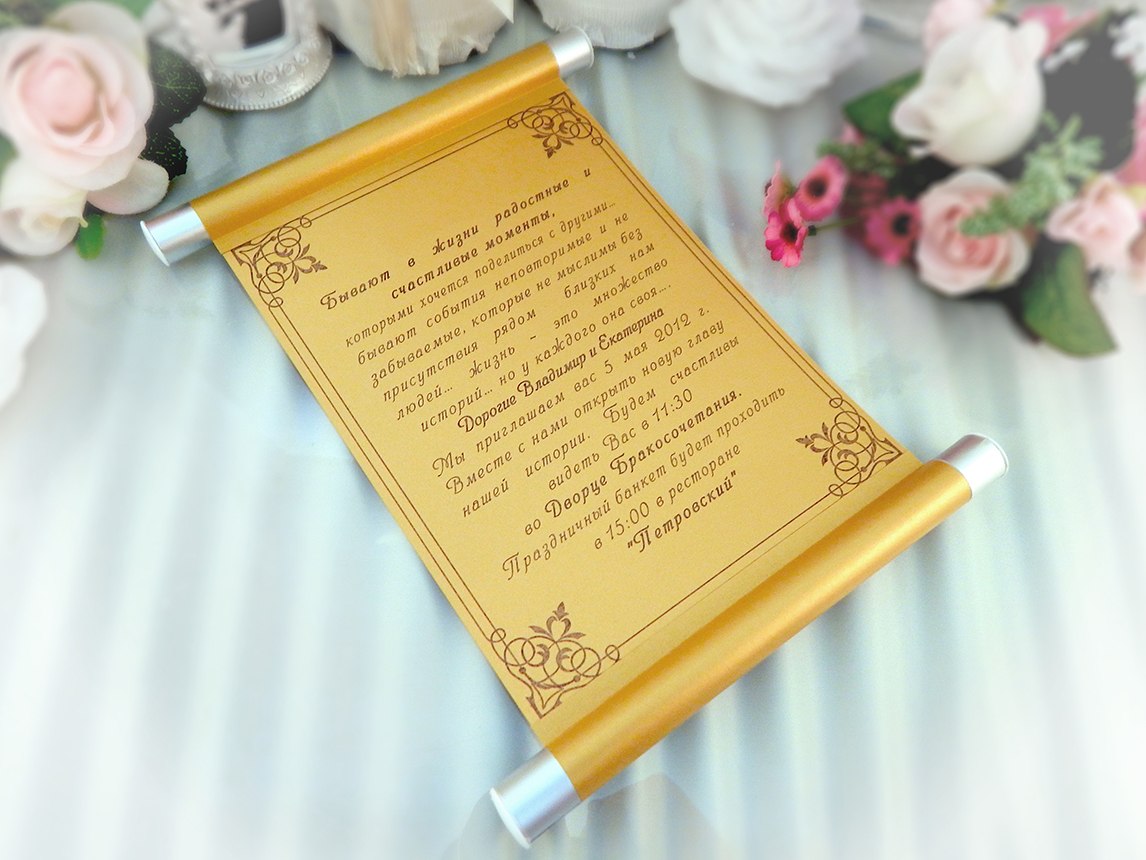 Бывают в жизни радостные и
счастливые моменты,
которыми хочется поделиться с другими...
бывают события неповторимые и не
забываемые, которые не мыслимы без
присутствия рядом близких нам
людей... Жизнь - это множество
историй... но у каждого она своя....
Дорогие Владимир и Екатерина
Мы приглашаем вас 5 мая 2012 г.
Вместе с нами открыть новую главу
нашей истории. Будем счастливы
видеть Вас в 11:30
во Дворце Бракосочетания.
Праздничный банкет будет проходить
в 15:00 в ресторане
"Петровский"